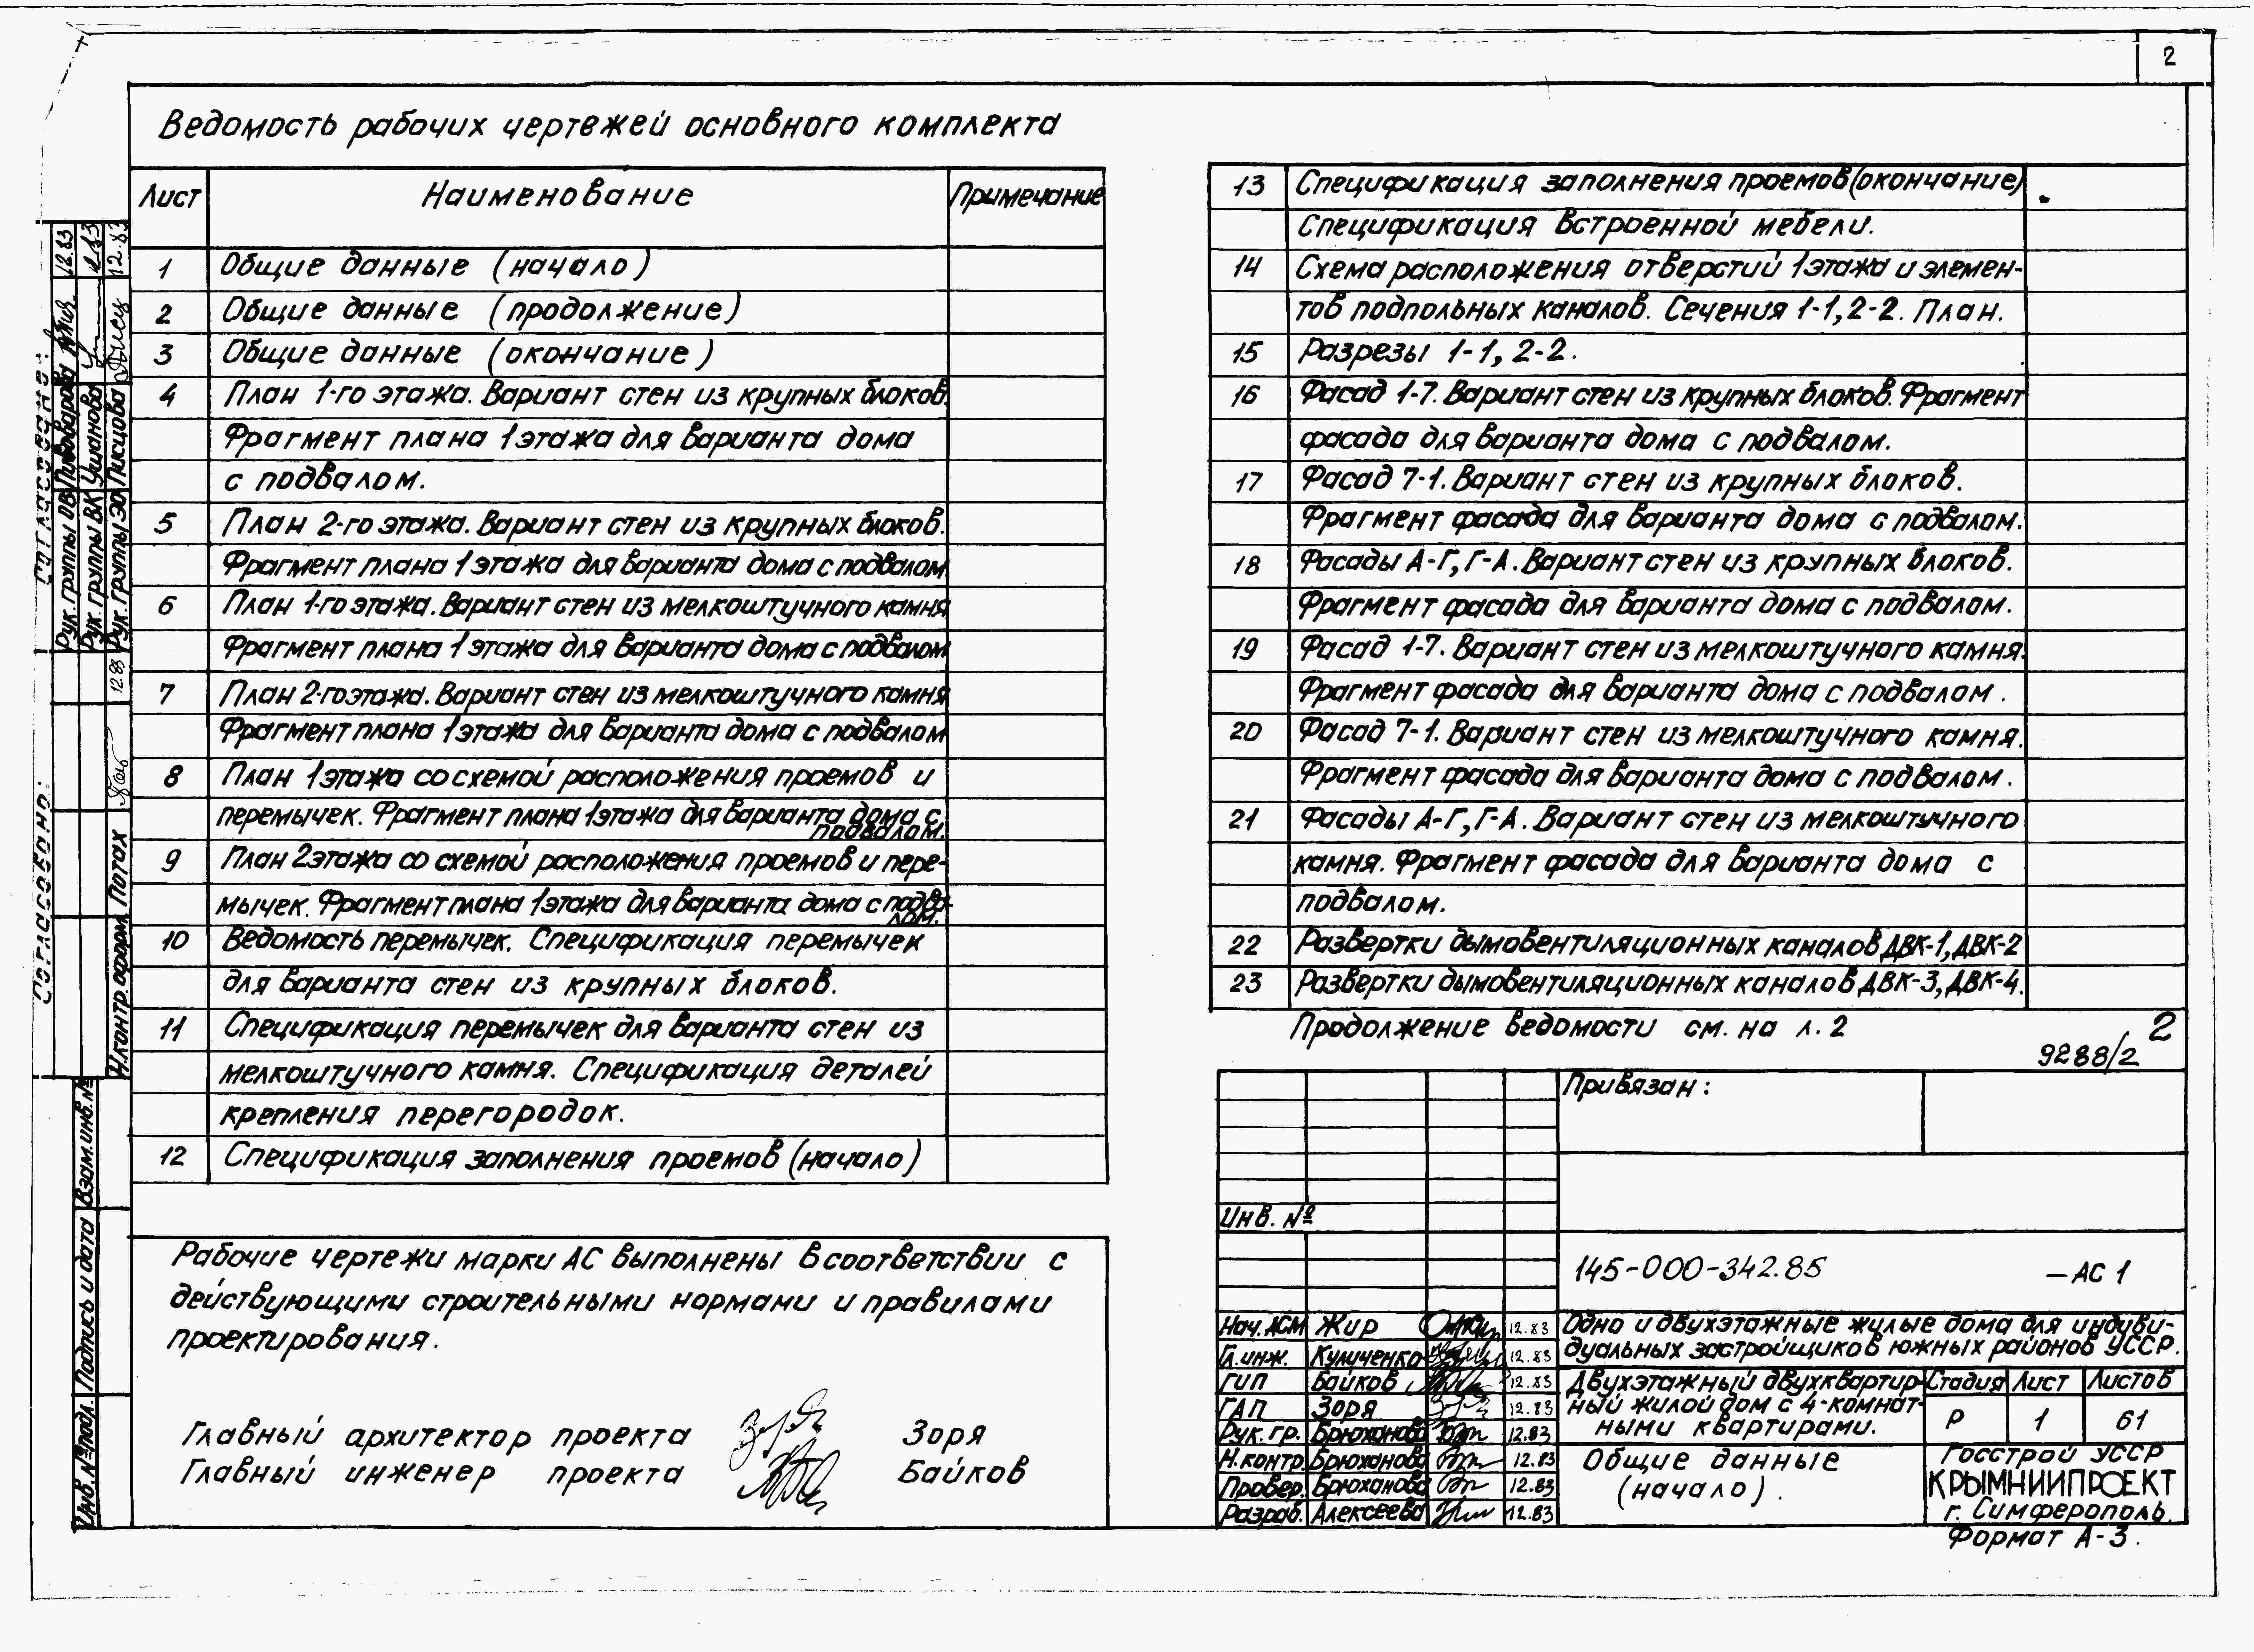 2
Ведомость рабочих чертежей основного комплекта
Лист Наименование Примечание
1 Общие данные (начало)
2 Общие данные (продолжение)
3 Общие данные (окончание)
4 План 1-го этажа. Вариант стен из крупных блоков.
Фрагмент плана 1 этажа для варианта дома
с подвалом.
5 План 2-го этажа. Вариант стен из крупных блоков.
Фрагмент плана 1 этажа для варианта дома с подвалом
6 План 1-го этажа. Вариант стен из мелкоштучного камня
Фрагмент плана 1 этажа для варианта дома с подвалом
7 План 2-го этажа. Вариант стен из мелкоштучного камня
Фрагмент плана 1 этажа для варианта дома с подвалом
8 План 1 этажа со схемой расположения проемов и
перемычек. Фрагмент плана 1 этажа для варианта дома с
подвалом.
9 План 2 этажа со схемой расположения проемов и пере-
мычек. Фрагмент плана 1 этажа для варианта дома с подва-
лом.
10 Ведомость перемычек. Спецификация перемычек
для варианта стен из крупных блоков.
11 Спецификация перемычек для варианта стен из
мелкоштучного камня. Спецификация деталей
крепления перегородок.
12 Спецификация заполнения проемов (начало)
13 Спецификация заполнения проемов (окончание)
Спецификация встроенной мебели.
14 Схема расположения отверстий 1 этажа и элемен-
тов подпольных каналов. Сечения 1-1, 2-2. План.
15 Разрезы 1-1, 2-2.
16 Фасад 1-7. Вариант стен из крупных блоков. Фрагмент
фасада для варианта дома с подвалом.
17 Фасад 7-1. Вариант стен из крупных блоков.
Фрагмент фасада для варианта дома с подвалом.
18 Фасады А-Г, Г-А. Вариант стен из крупных блоков.
Фрагмент фасада для варианта дома с подвалом.
19 Фасад 1-7. Вариант стен из мелкоштучного камня.
Фрагмент фасада для варианта дома с подвалом.
20 Фасад 7-1. Вариант стен из мелкоштучного камня.
Фрагмент фасада для варианта дома с подвалом.
21 Фасады А-Г, Г-А. Вариант стен из мелкоштучного
камня. Фрагмент фасада для варианта дома с
подвалом.
22 Развертки дымовентиляционных каналов ДВК-1, ДВК-2
23 Развертки дымовентиляционных каналов ДВК-3, ДВК-4.
Продолжение ведомости см. на л. 2
2
9288/2
Рабочие чертежи марки АС выполнены в соответствии с
действующими строительными нормами и правилами
проектирования.
Главный архитектор проекта Зоря
Главный инженер проекта Байков
Привязан:
Инв. №
145-000-342.85 -АС 1
Нач. АСМ Жир 12.83
Гл. инж. Куличенко 12.83
ГИП Байков 12.83
ГАП Зоря 12.83
Рук. гр. Брюханова 12.83
Н.контр. Брюханова 12.83
Провер. Брюханова 12.83
Разраб. Алексеева 12.83
Одно и двухэтажные жилые дома для индиви-
дуальных застройщиков южных районов УССР.
Двухэтажный двухквартир-
ный жилой дом с 4-комнат-
ными квартирами.
Стадия Лист Листов
Р 1 61
Общие данные
(начало).
Госстрой УССР
КРЫМНИИПРОЕКТ
г. Симферополь.
Формат А-3.
Согласовано:
Рук. группы ОВ Пивоварова 12.83
Рук. группы ВК Ушанова 12.83
Рук. группы ЭО Писцова 12.83
Согласовано:
Н.контр. оформ. Потах 12.83
Взам. инв. №
Подпись и дата
Инв. № подл.